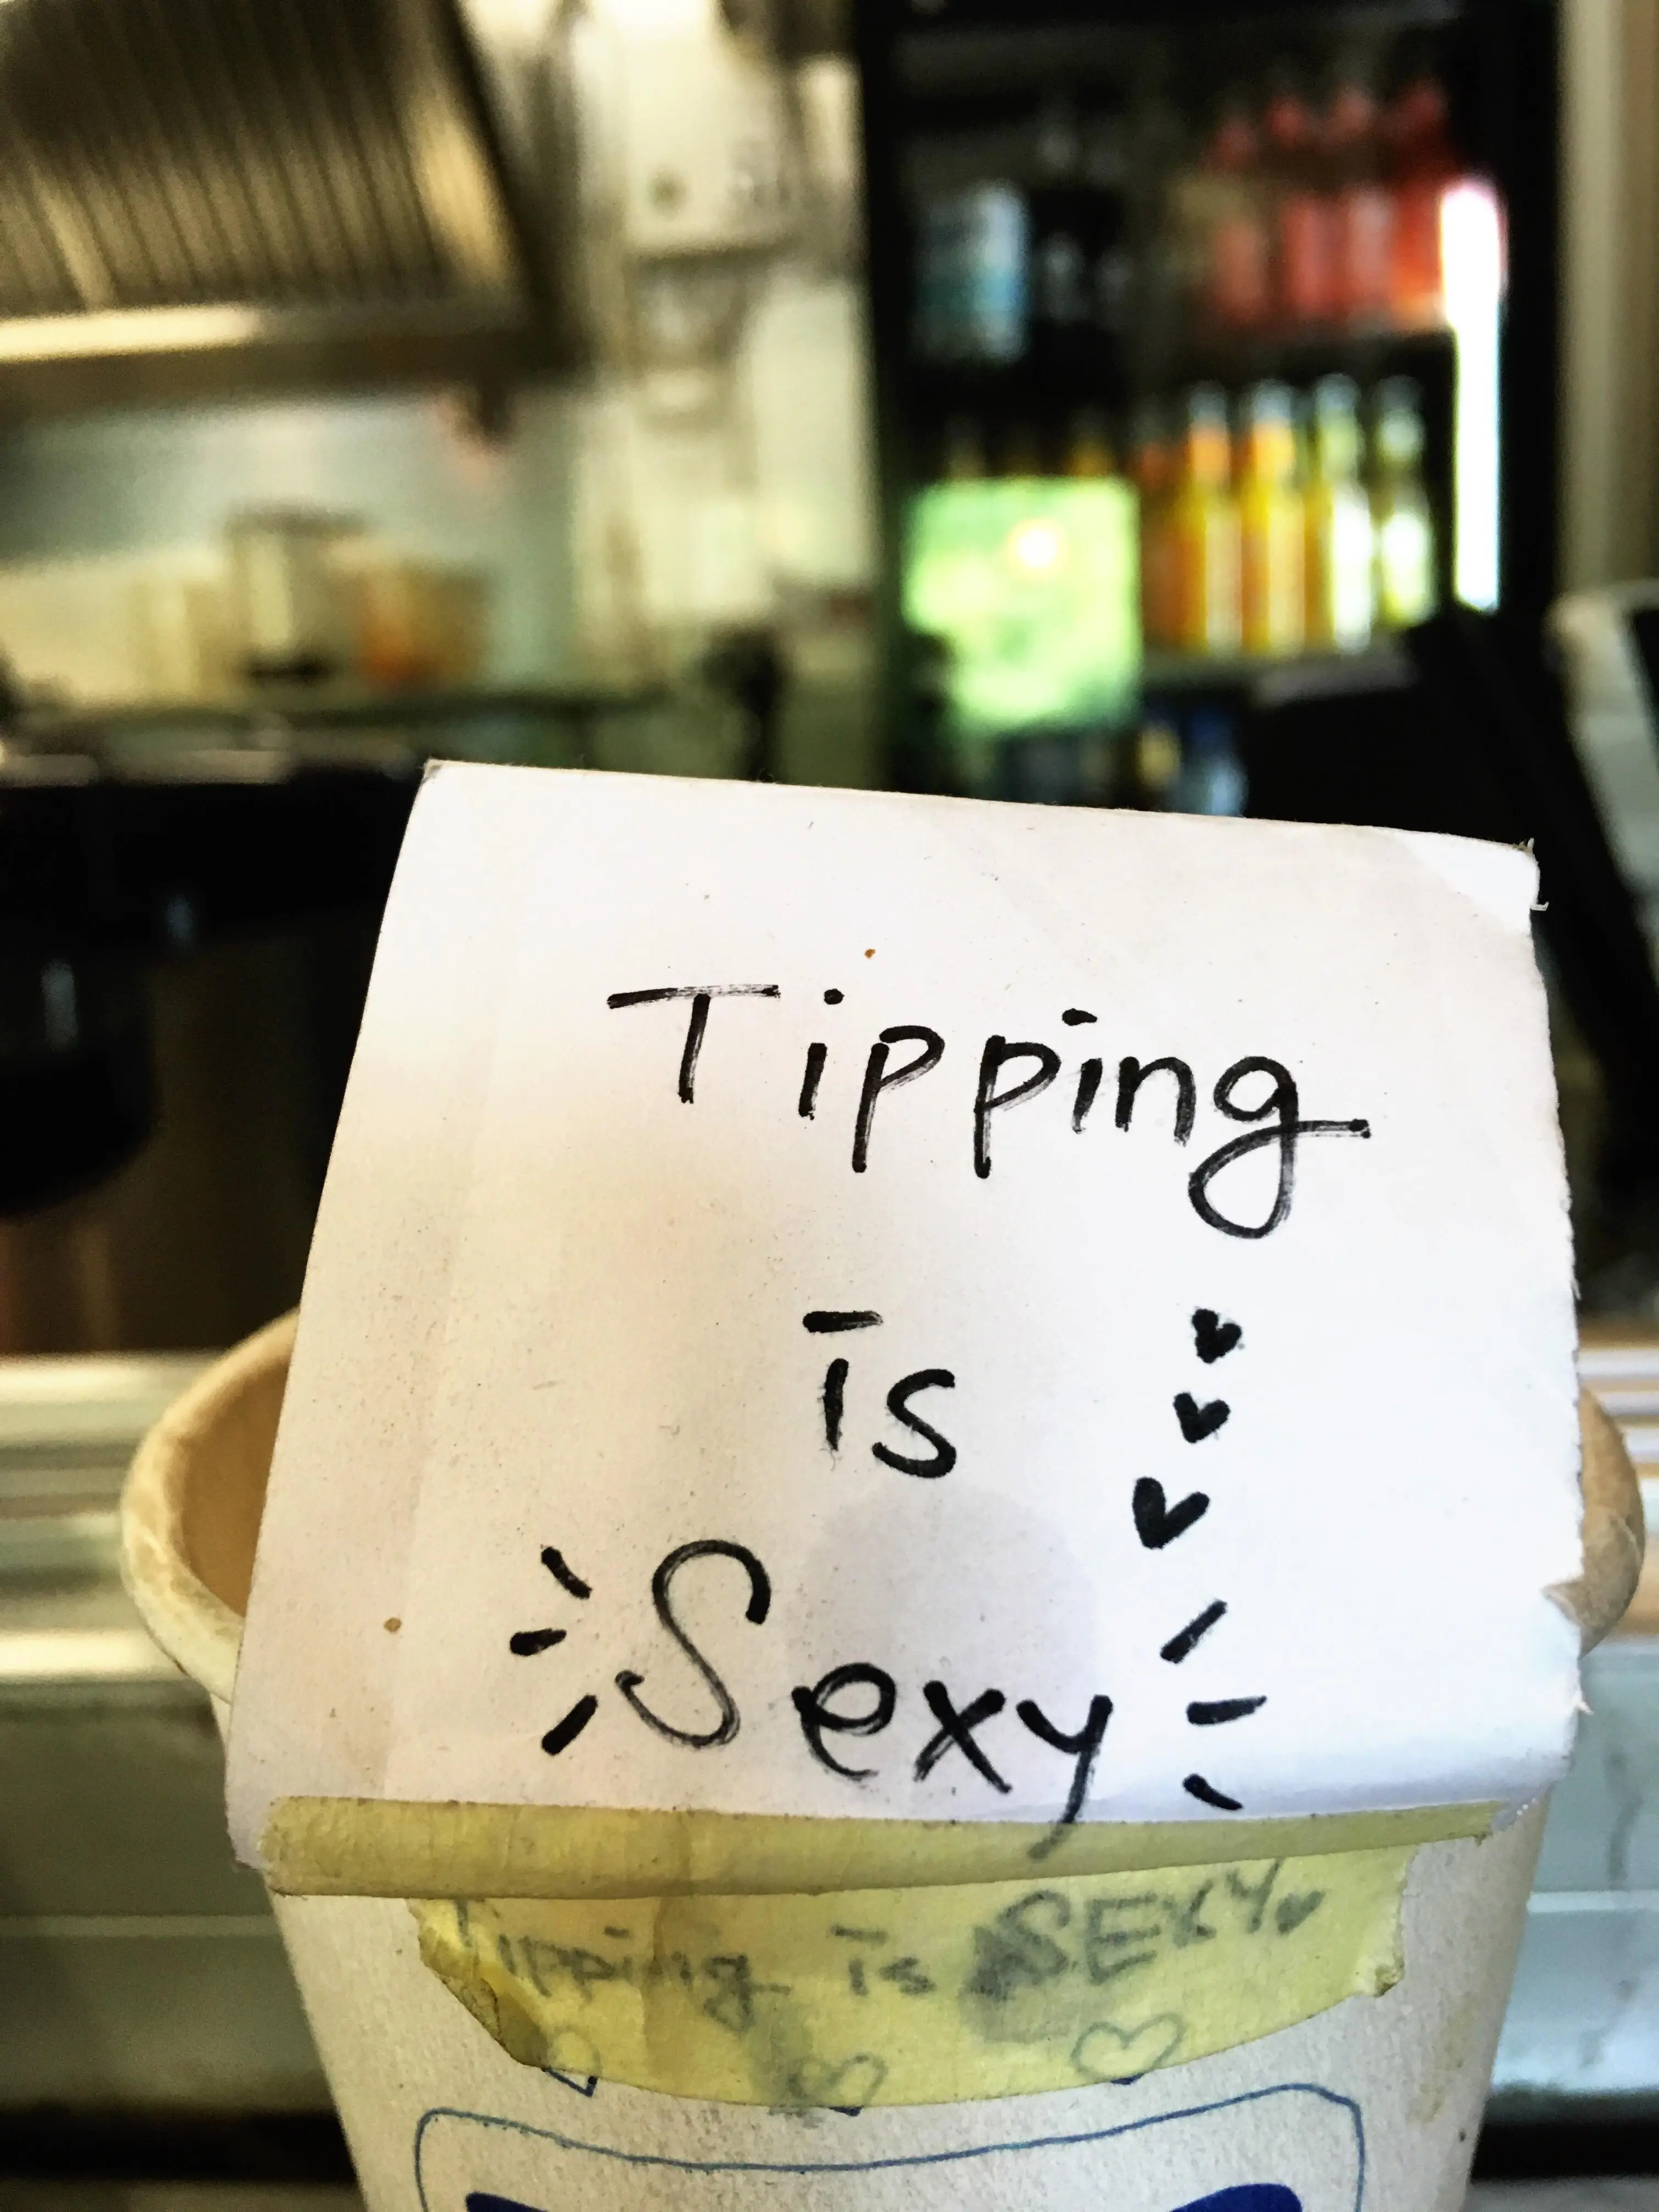 Tipping
is
Sexy
Tipping is SEXY